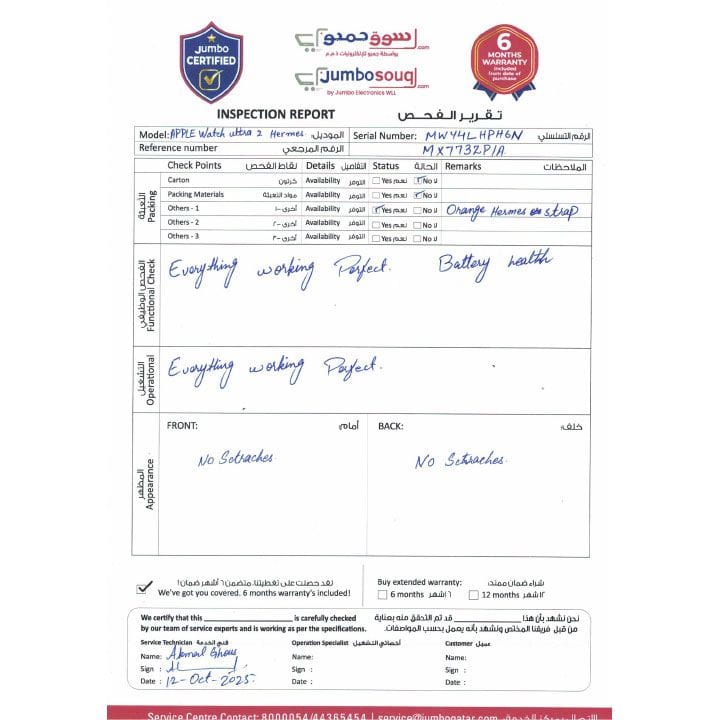 Jumbo
CERTIFIED
سوق جمبو.com
بواسطة جمبو للإلكترونيات ذ.م.م
jumbosouq.com
by Jumbo Electronics WLL
6
MONTHS
WARRANTY
Included
from date of
purchase
INSPECTION REPORT تقرير الفحص
Model: APPLE Watch ultra 2 Hermes الموديل: Serial Number: MWY4LHPH6N الرقم التسلسلي
Reference number الرقم المرجعي MX773ZP/A
Check Points نقاط الفحص Details التفاصيل Status الحالة Remarks الملاحظات
التعبئة Packing
Carton كرتون Availability التوفر Yes نعم No لا
Packing Materials مواد التعبئة Availability التوفر Yes نعم No لا
Others - 1 أخرى-١ Availability التوفر Yes نعم No لا Orange Hermes strap
Others - 2 أخرى-٢ Availability التوفر Yes نعم No لا
Others - 3 أخرى-٣ Availability التوفر Yes نعم No لا
الفحص الوظيفي Functional Check
Everything working Perfect. Battery health
التشغيل Operational
Everything working Perfect.
المظهر Appearance
FRONT: أمام: BACK: خلف:
No Sctraches. No Sctraches.
لقد حصلت على تغطيتنا. متضمن ٦ أشهر ضمان!
We've got you covered. 6 months warranty's included!
Buy extended warranty: شراء ضمان ممتد:
6 months ٦ اشهر 12 months ١٢ شهر
We certify that this is carefully checked نحن نشهد بأن هذا قد تم التحقق منه بعناية
by our team of service experts and is working as per the specifications. من قبل فريقنا المختص ونشهد بأنه يعمل بحسب المواصفات.
Service Technician فني الخدمة Operation Specialist أخصائي التشغيل Customer عميل
Name: Akmal Ghous Name: Name:
Sign : Sign : Sign :
Date : 12-Oct-2025. Date : Date :
Service Centre Contact: 8000054/44365454 | service@jumboqatar.com